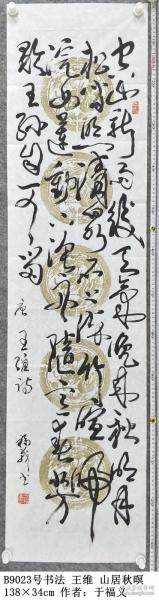 空山新雨後天氣晚來秋明月
松間照清泉石上流竹喧歸
浣女蓮動下漁舟隨意春芳
歇王孫自可留
唐王維詩
福義書
B9023号书法 王维 山居秋暝
138×34cm 作者：于福义